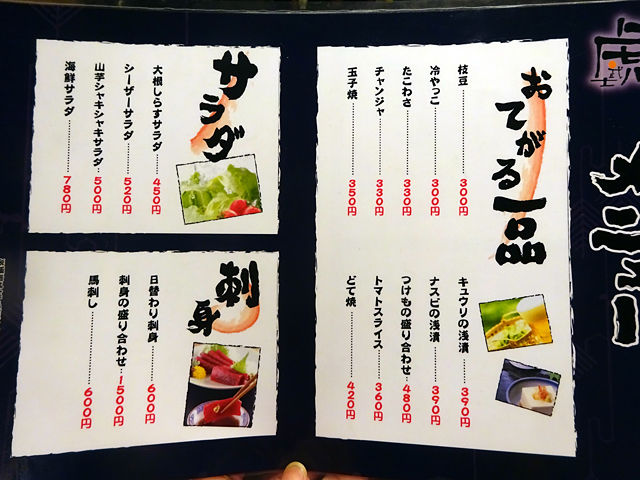 おてがる一品
枝豆 300円
冷やっこ 300円
たこわさ 330円
チャンジャ 330円
玉子焼 350円
キュウリの浅漬 390円
ナスビの浅漬 390円
つけもの盛り合わせ 480円
トマトスライス 360円
どて焼 420円
サラダ
大根しらすサラダ 450円
シーザーサラダ 520円
山芋シャキシャキサラダ 500円
海鮮サラダ 780円
刺身
日替わり刺身 600円
刺身の盛り合わせ 1500円
馬刺し 600円